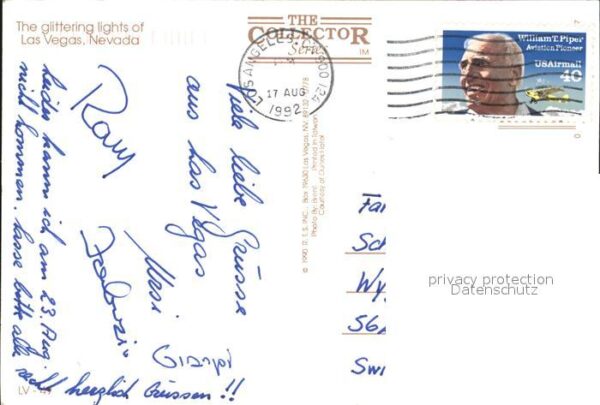 The glittering lights of
Las Vegas, Nevada
THE
COLLECTOR
Series
TM
LOS ANGELES, CA
17 AUG
1992
William T. Piper
Aviation Pioneer
USAirmail
40
Viele liebe Grüsse
aus Las Vegas
Ursi
Leider kann ich am 23. Aug.
nicht kommen. Lasse bitte alle
recht herzlich Grüssen!!
© 1990 R.L.S. INC., Box
Las Vegas, NV
Photo By:
Printed in Taiwan
Courtesy of Dunes Hotel
Fa
Sc
Wy
56
Swi
privacy protection
Datenschutz
LV - 49